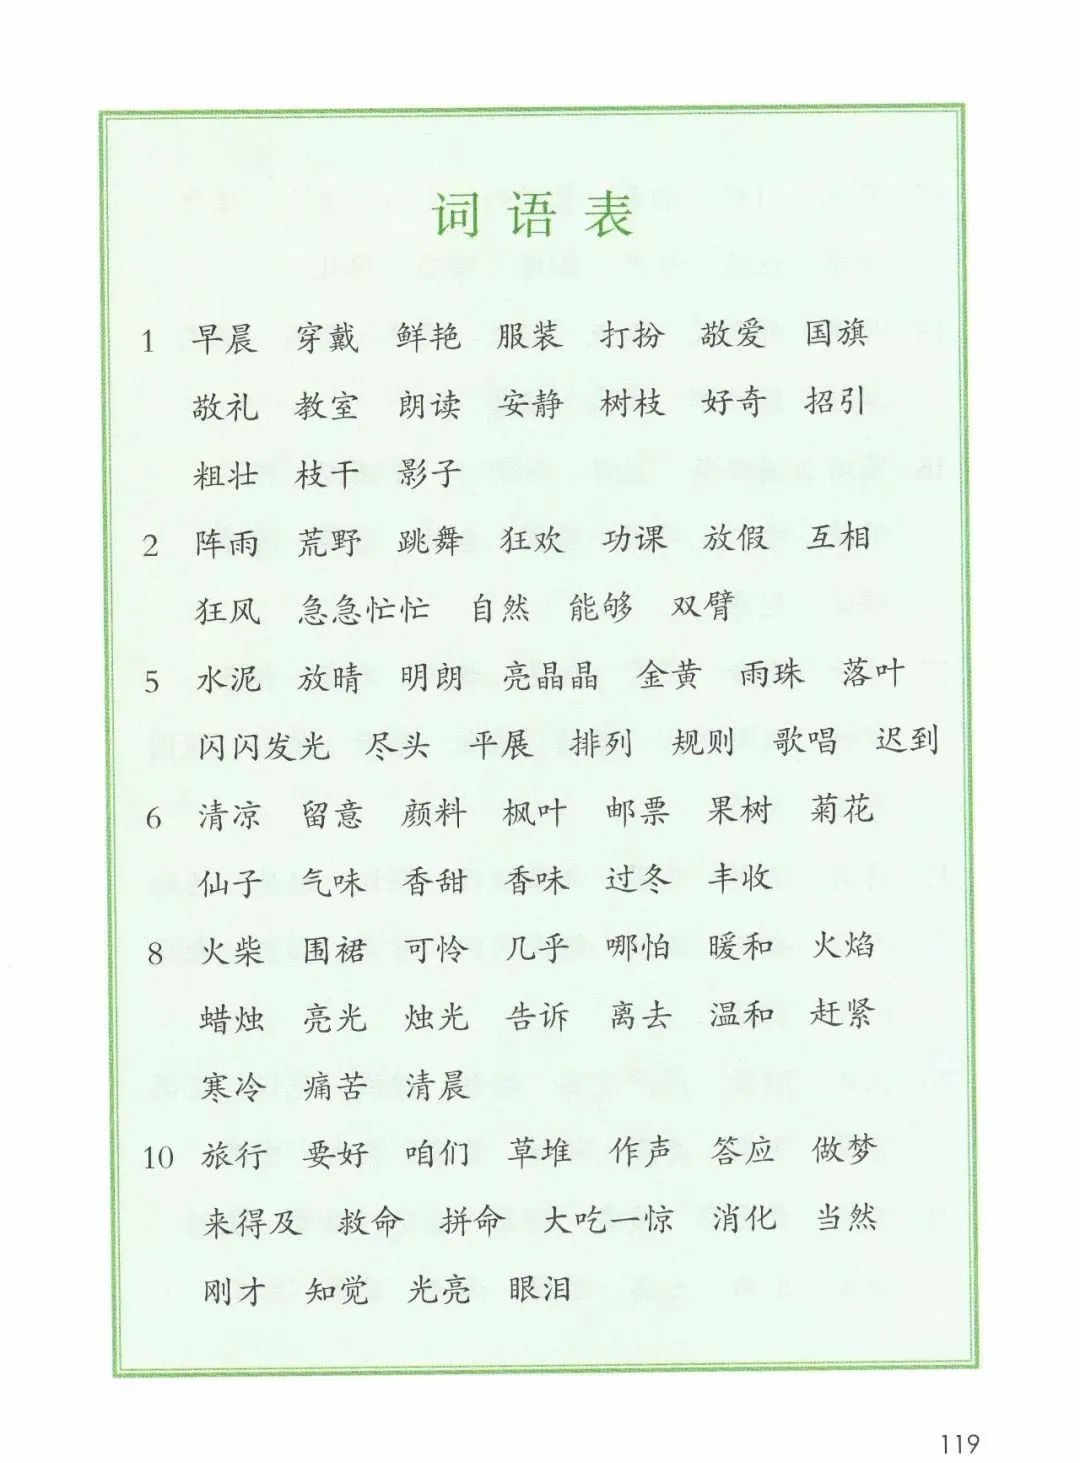 词语表
1 早晨 穿戴 鲜艳 服装 打扮 敬爱 国旗
敬礼 教室 朗读 安静 树枝 好奇 招引
粗壮 枝干 影子
2 阵雨 荒野 跳舞 狂欢 功课 放假 互相
狂风 急急忙忙 自然 能够 双臂
5 水泥 放晴 明朗 亮晶晶 金黄 雨珠 落叶
闪闪发光 尽头 平展 排列 规则 歌唱 迟到
6 清凉 留意 颜料 枫叶 邮票 果树 菊花
仙子 气味 香甜 香味 过冬 丰收
8 火柴 围裙 可怜 几乎 哪怕 暖和 火焰
蜡烛 亮光 烛光 告诉 离去 温和 赶紧
寒冷 痛苦 清晨
10 旅行 要好 咱们 草堆 作声 答应 做梦
来得及 救命 拼命 大吃一惊 消化 当然
刚才 知觉 光亮 眼泪
119